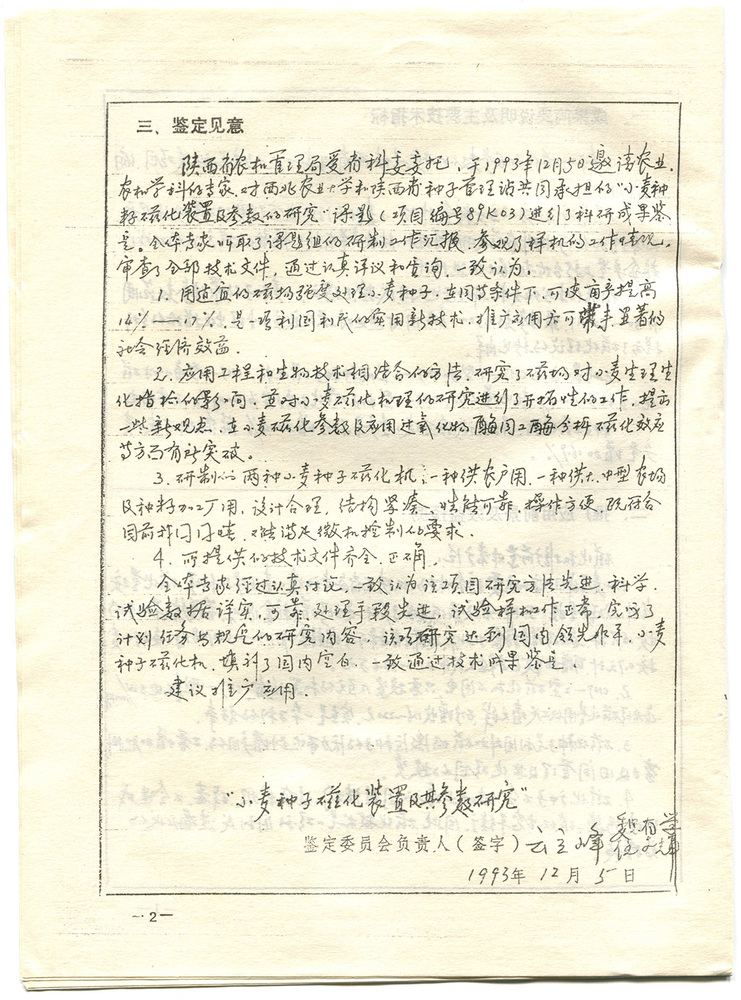 三、鉴定见意
陕西省农机管理局受省科委委托，于1993年12月5日邀请农业、
农机学科的专家，对西北农业大学和陕西省种子管理站共同承担的“小麦种
籽磁化装置及参数的研究”课题（项目编号89K03）进行了科研成果鉴
定。全体专家听取了课题组的研制工作汇报，参观了样机的工作情况，
审查了全部技术文件，通过认真评议和查询，一致认为：
1. 用适宜的磁场强度处理小麦种子，在同等条件下，可使亩产提高
14%——17%，是一项利国利民的实用新技术，推广应用后可带来显著的
社会经济效益。
2. 应用工程和生物技术相结合的方法，研究了磁场对小麦生理生
化指标的影响，并对小麦磁化机理的研究进行了开拓性的工作，提出
一些新观点，在小麦磁化参数及应用过氧化物酶同工酶分析磁化效应
等方面有所突破。
3. 研制的两种小麦种子磁化机，一种供农户用，一种供大、中型农场
及种籽加工厂用，设计合理，结构紧凑，性能可靠，操作方便，既符合
目前我国国情，又能满足微机控制的要求。
4. 所提供的技术文件齐全、正确。
全体专家经过认真讨论，一致认为该项目研究方法先进、科学，
试验数据详实、可靠，处理手段先进，试验样机工作正常，完成了
计划任务书规定的研究内容，该项研究达到国内领先水平，小麦
种子磁化机，填补了国内空白，一致通过技术成果鉴定。
建议推广应用。
“小麦种子磁化装置及其参数研究”
鉴定委员会负责人（签字）云立峰 魏有学
1993年12月5日
—·2—